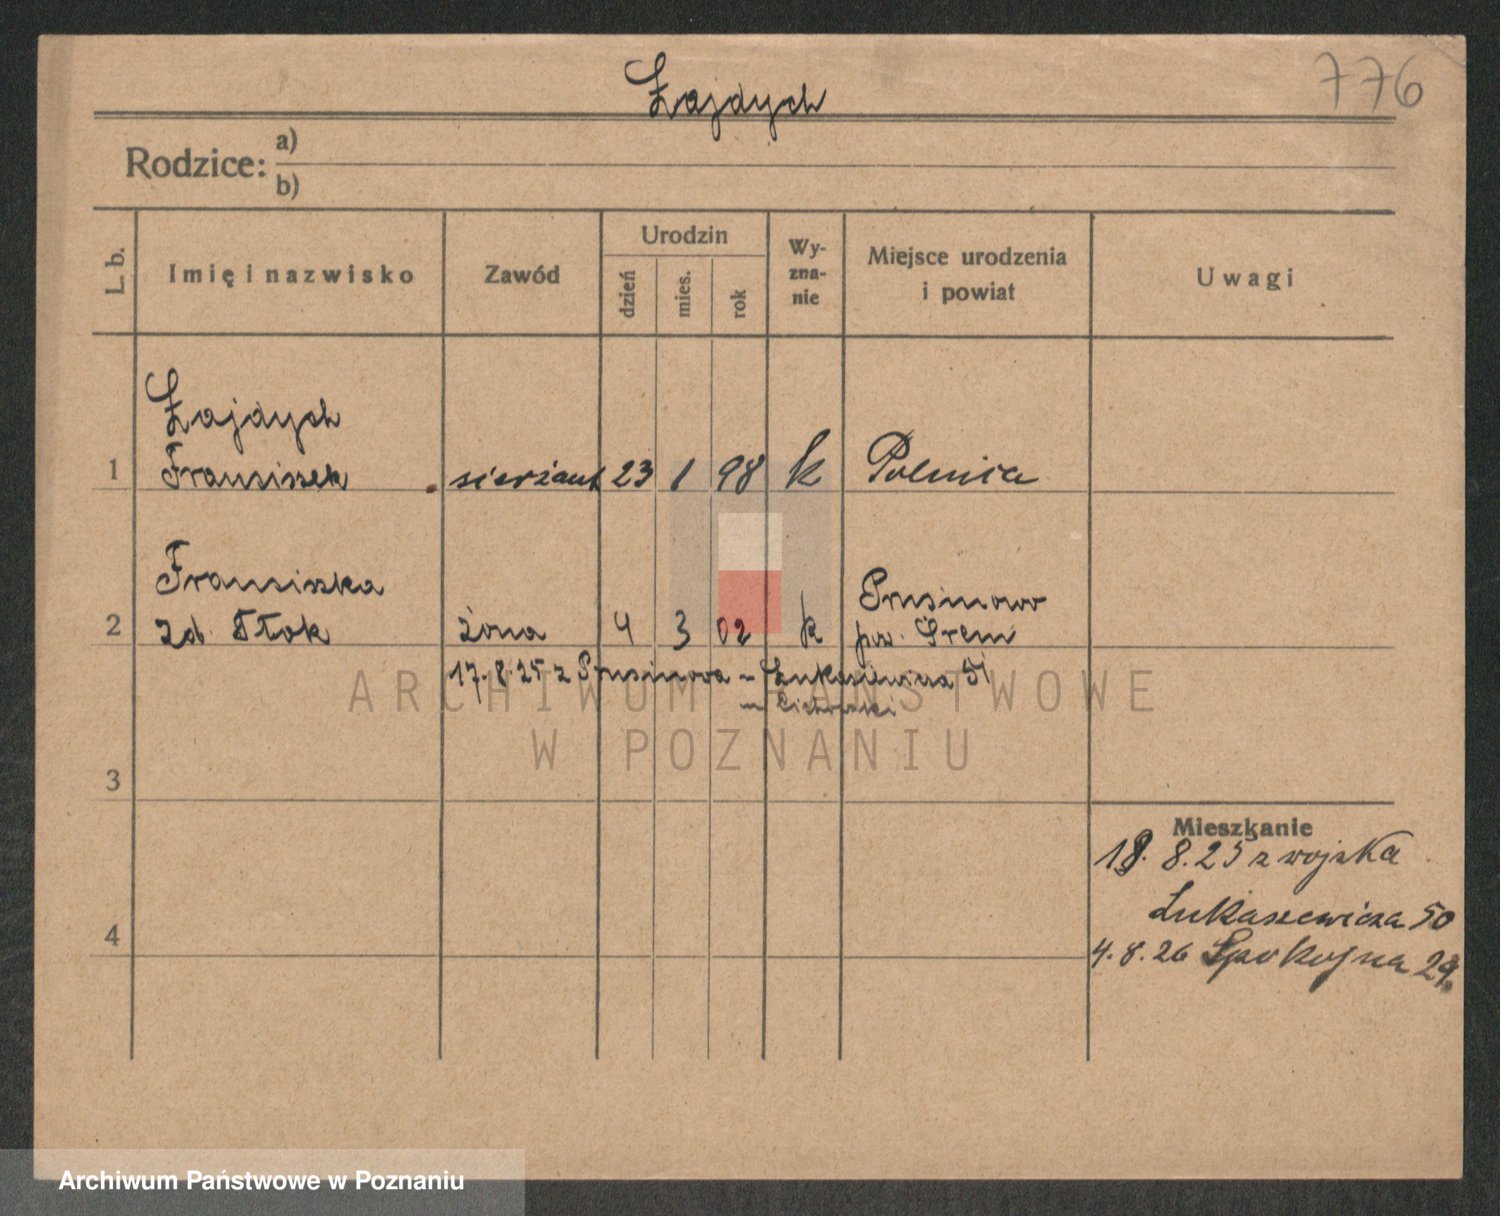 776
Żajdych
Rodzice:
a)
b)
L. b.
Imię i nazwisko
Zawód
Urodzin
dzień
mies.
rok
Wy-
zna-
nie
Miejsce urodzenia
i powiat
Uwagi
Żajdych
1 Franciszek sierżant 23 1 98 k Polenica
Franciszka
2 zd. Tłok żona 4 3 02 k
Prusinowo
pow. Śrem
17.8.25 z Prusinowa – Łukasiewicza 51
ARCHIWUM PAŃSTWOWE
W POZNANIU
3
4
Mieszkanie
18. 8. 25 z wojska
Łukaszewicza 50
4. 8. 26 Spokojna 29.
Archiwum Państwowe w Poznaniu